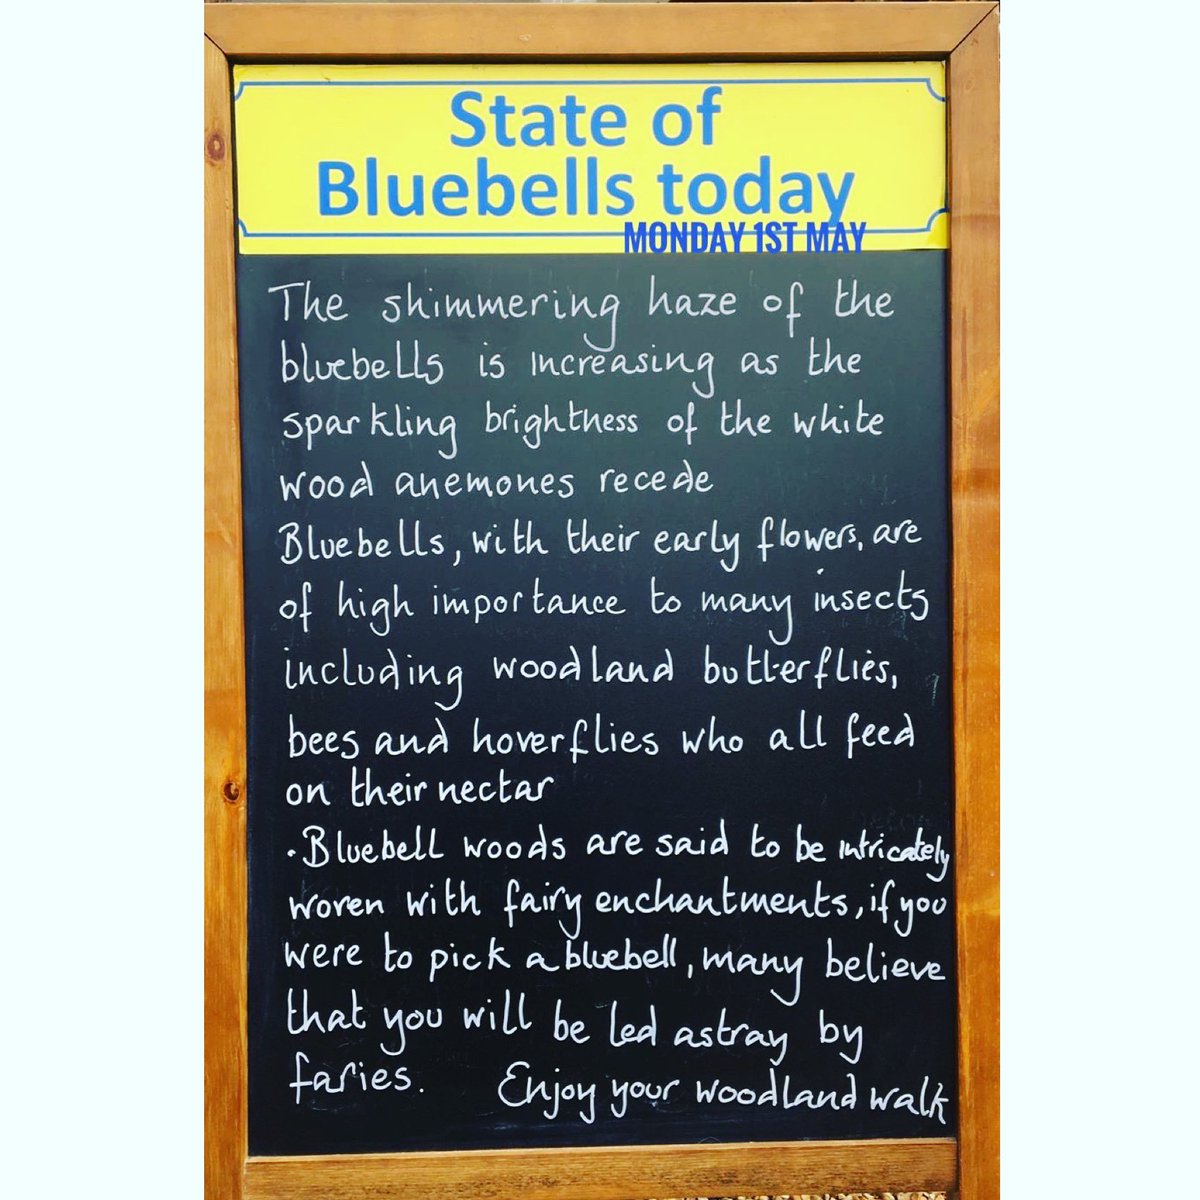 State of
Bluebells today
MONDAY 1ST MAY
The shimmering haze of the
bluebells is increasing as the
sparkling brightness of the white
wood anemones recede
Bluebells, with their early flowers, are
of high importance to many insects
including woodland butterflies,
bees and hoverflies who all feed
on their nectar
• Bluebell woods are said to be intricately
woven with fairy enchantments, if you
were to pick a bluebell, many believe
that you will be led astray by
faries. Enjoy your woodland walk